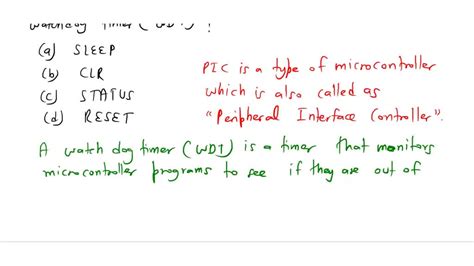 watchdog timer (WDT) ?
(a) SLEEP
(b) CLR
(c) STATUS
(d) RESET
PIC is a type of microcontroller
which is also called as
"Peripheral Interface Controller".
A watch dog timer (WDT) is a timer that monitors
microcontroller programs to see if they are out of